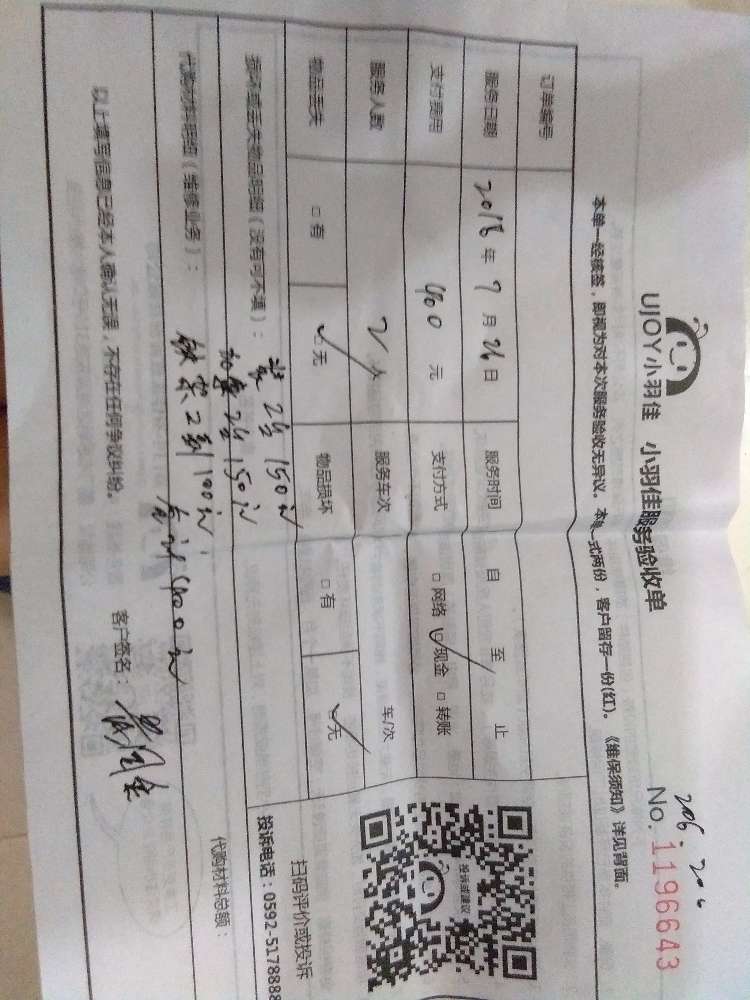 UJOY小羽佳 小羽佳服务验收单
No. 1196643
本单一经核签，即视为对本次服务验收无异议。本单一式两份，客户留存一份(红)。《维保须知》详见背面。
订单编号
服务日期 2018年7月26日 服务时间 自 至 止
支付费用 900元 支付方式 □网络 ☑现金 □转账
服务人数 2人 服务车次 车/次
物品丢失 □有 ☑无 物品损坏 □有 ☑无
投诉或建议
扫码评价或投诉
投诉电话：0592-5178888
损坏或丢失物品明细(没有可不填)：
2台150元
2台150元
代购材料明细(维修业务)： 代购材料总额：
100元
以上填写信息已经本人确认无误，不存在任何争议纠纷。 客户签名：